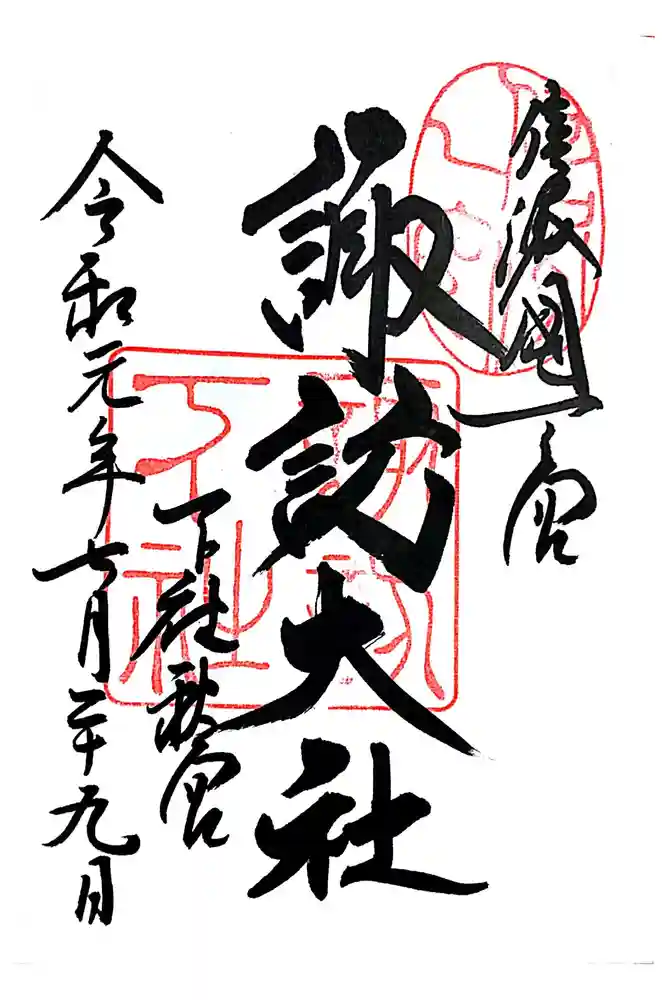 信濃國一宮
諏訪大社
下社秋宮
令和元年七月二十九日
諏訪
下社